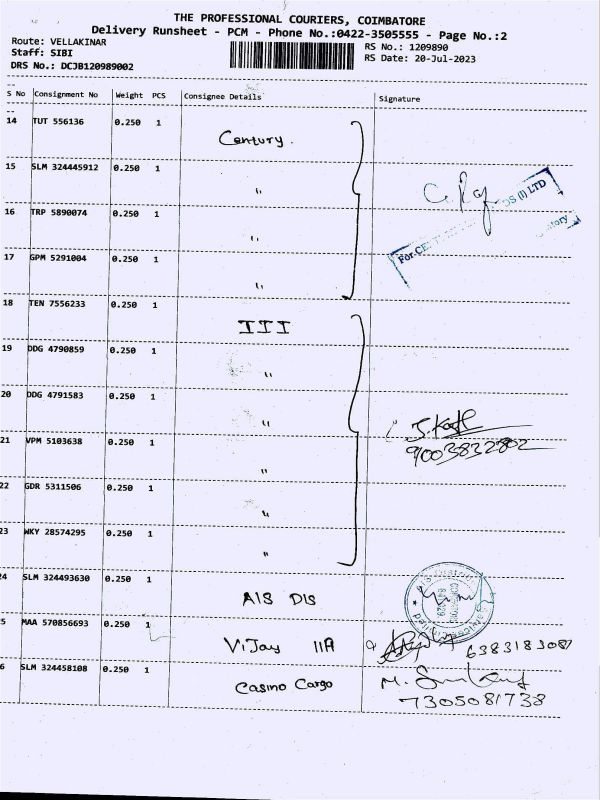 THE PROFESSIONAL COURIERS, COIMBATORE
Delivery Runsheet - PCM - Phone No.:0422-3505555 - Page No.:2
Route: VELLAKINAR
RS No.: 1209890
Staff: SIBI
RS Date: 20-Jul-2023
DRS No.: DCJB120989002
S No Consignment No Weight PCS Consignee Details Signature
14 TUT 556136 0.250 1 Century.
15 SLM 324445912 0.250 1 "
16 TRP 5890074 0.250 1 "
17 GPM 5291004 0.250 1 "
For CE
DS (I) LTD
18 TEN 7556233 0.250 1 III
19 DDG 4790859 0.250 1 "
20 DDG 4791583 0.250 1 "
21 VPM 5103638 0.250 1 "
9003832802
22 GDR 5311506 0.250 1 "
23 WKY 28574295 0.250 1 "
24 SLM 324493630 0.250 1 AIS DIS
25 MAA 570856693 0.250 1 Vijay IIA 6383183087
26 SLM 324458108 0.250 1 Casino Cargo
7305081738